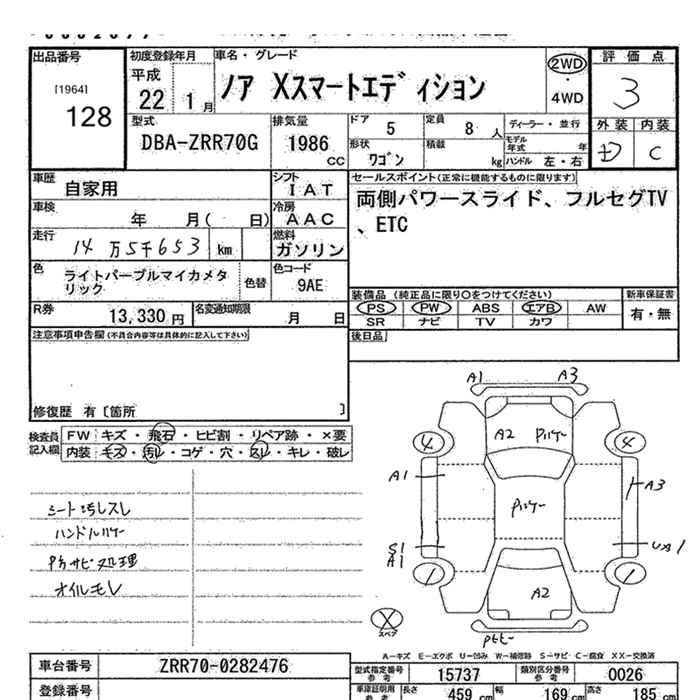 出品番号
[1964]
128
初度登録年月
平成
22 1月
車名・グレード
ノア Xスマートエディション
2WD
・
4WD
評価点
3
型式
DBA-ZRR70G
排気量
1986 cc
ドア 5
定員 8 人
ディーラー・並行
形状 ワゴン
積載 kg
モデル年式 年
ハンドル 左・右
外装 内装
C
車歴 自家用
シフト IAT
車検 年 月( 日)
冷房 AAC
走行 14万5千653 km
燃料 ガソリン
色 ライトパープルマイカメタリック
色替
色コード 9AE
R券 13,330 円
名変通知期限 月 日
セールスポイント(正常に機能するものに限ります)
両側パワースライド、フルセグTV
、ETC
装備品 (純正品に限り○をつけてください)
新車保証書
PS PW ABS エアB AW
SR ナビ TV カワ
有・無
後日品
注意事項申告欄(不具合内容等は具体的に記入して下さい)
修復歴 有〔箇所 〕
検査員記入欄
FW キズ・飛石・ヒビ割・リペア跡・×要
内装 キズ・汚レ・コゲ・穴・スレ・キレ・破レ
シート汚レスレ
オイルモレ
A1 A3
4 4
A2
A1 A3
S1
A1
1 1
A2
X
スペア
A-キズ E-エクボ U-凹み W-補修跡 S-サビ C-腐食 XX-交換済
車台番号 ZRR70-0282476
登録番号
型式指定番号 参考 15737
類別区分番号 参考 0026
車庫証明用 参考 長さ 459 cm 幅 169 cm 高さ 185 cm